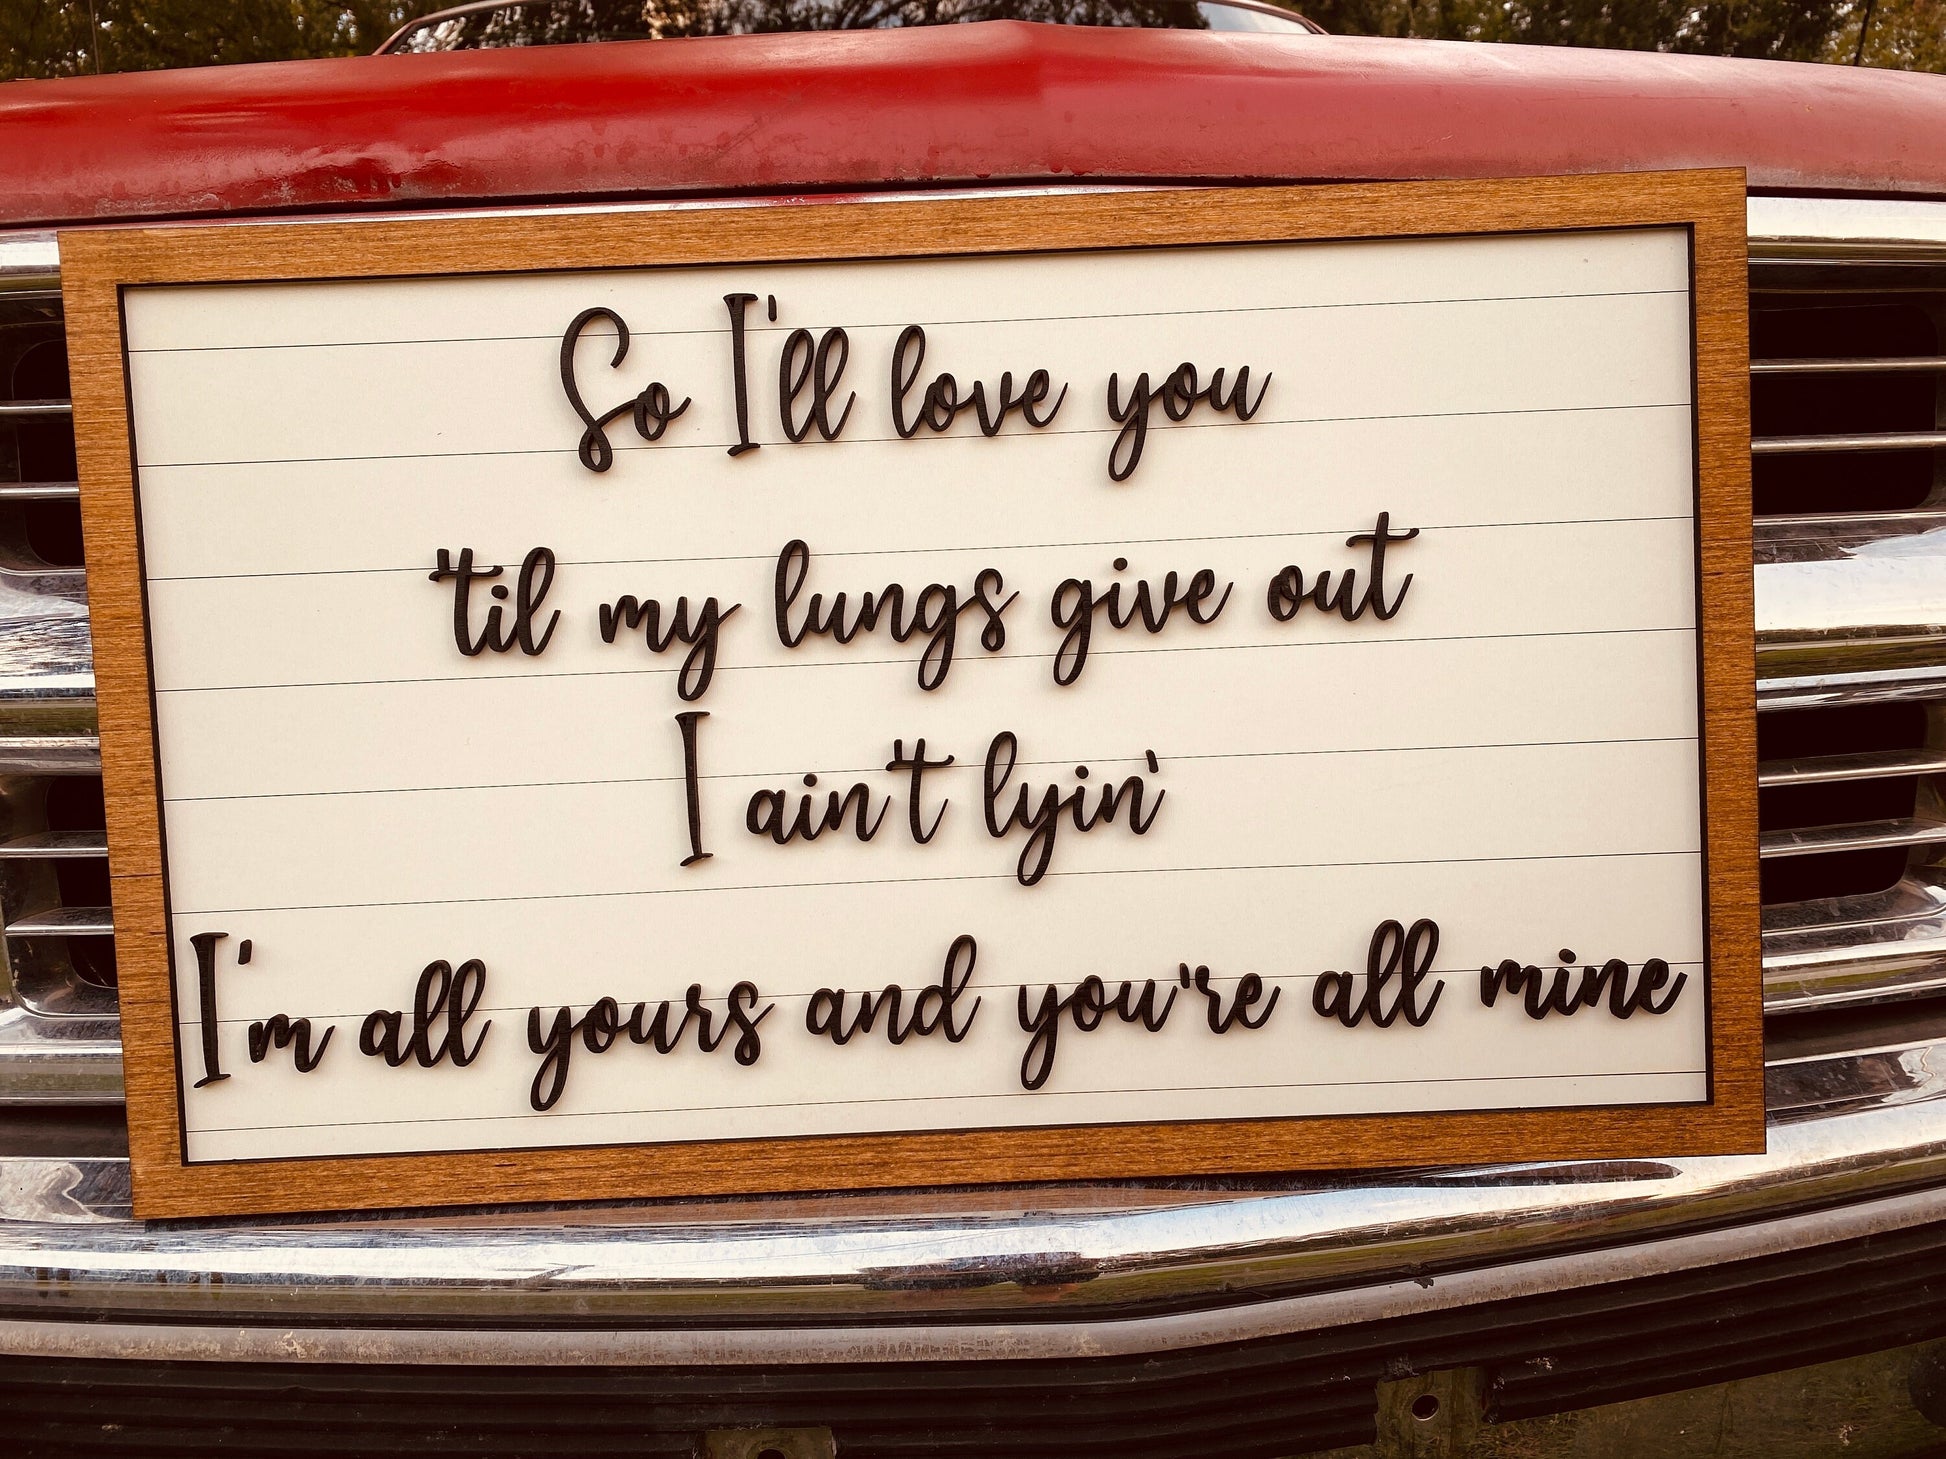 So I'll love you
'til my lungs give out
I ain't lyin'
I'm all yours and you're all mine